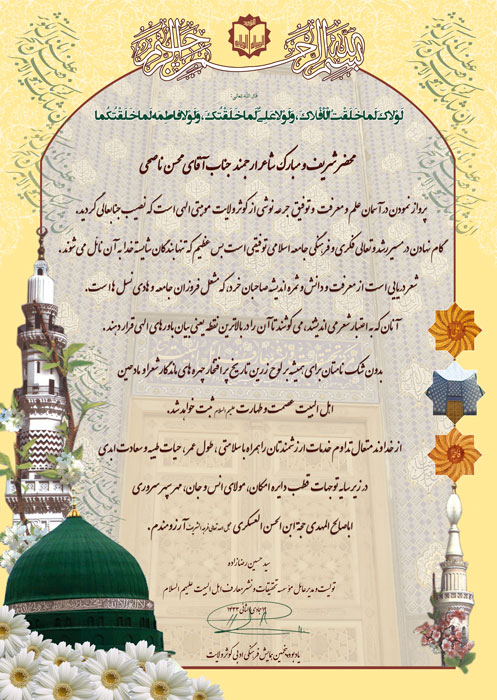 بسم الله الرحمن الرحیم
قال الله تعالی:
لولاک لما خلقت الافلاک، ولولا علی لما خلقتک، ولولا فاطمه لما خلقتکما
محضر شریف و مبارک شاعر ارجمند جناب آقای محسن ناصحی
پرواز نمودن در آسمان علم و معرفت و توفیق جرعه نوشی از کوثر ولایت موهبتی الهی است که نصیب جنابعالی گردید.
گام نهادن در مسیر رشد و تعالی فکری و فرهنگی جامعه اسلامی توفیقی است بس عظیم که تنها بندگان شایسته خدا به آن نائل می شوند.
شعر دریایی است از معرفت و دانش و ثمره اندیشه صاحبان خرد، که مشعل فروزان جامعه و هادی نسل ها است.
آنان که به اعتبار شعر می اندیشند، می کوشند تا آن را در بالاترین نقطه یعنی بیان باورهای الهی قرار دهند.
بدون شک نامتان برای همیشه بر لوح زرین تاریخ پر افتخار چهره های ماندگار شعرا و مادحین
اهل البیت عصمت و طهارت علیهم السلام ثبت خواهد شد.
از خداوند متعال تداوم خدمات ارزشمندتان را همراه با سلامتی، طول عمر، حیات طیبه و سعادت ابدی
در زیر سایه توجهات قطب دایره امکان، مولای انس و جان، مهر سپهر سروری
اباصالح المهدی حجة ابن الحسن العسکری عجل الله تعالی فرجه الشریف آرزومندم.
سید حسین رضازاده
تولیت و مدیر عامل مؤسسه تحقیقات و نشر معارف اهل البیت علیهم السلام
جمادی الثانی ۱۴۳۳
یادبود پنجمین همایش فرهنگی ادبی کوثر ولایت